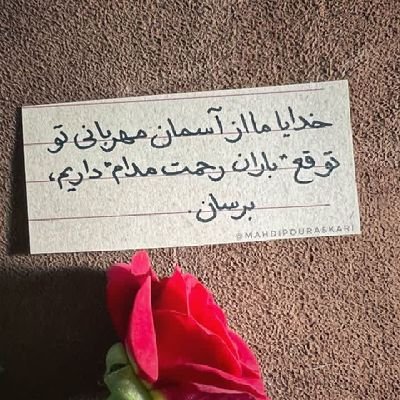 خدایا ما از آسمان مهربانی تو
توقع "باران رحمت مدام" داریم،
برسان.
@MAHDIPOURASKARI